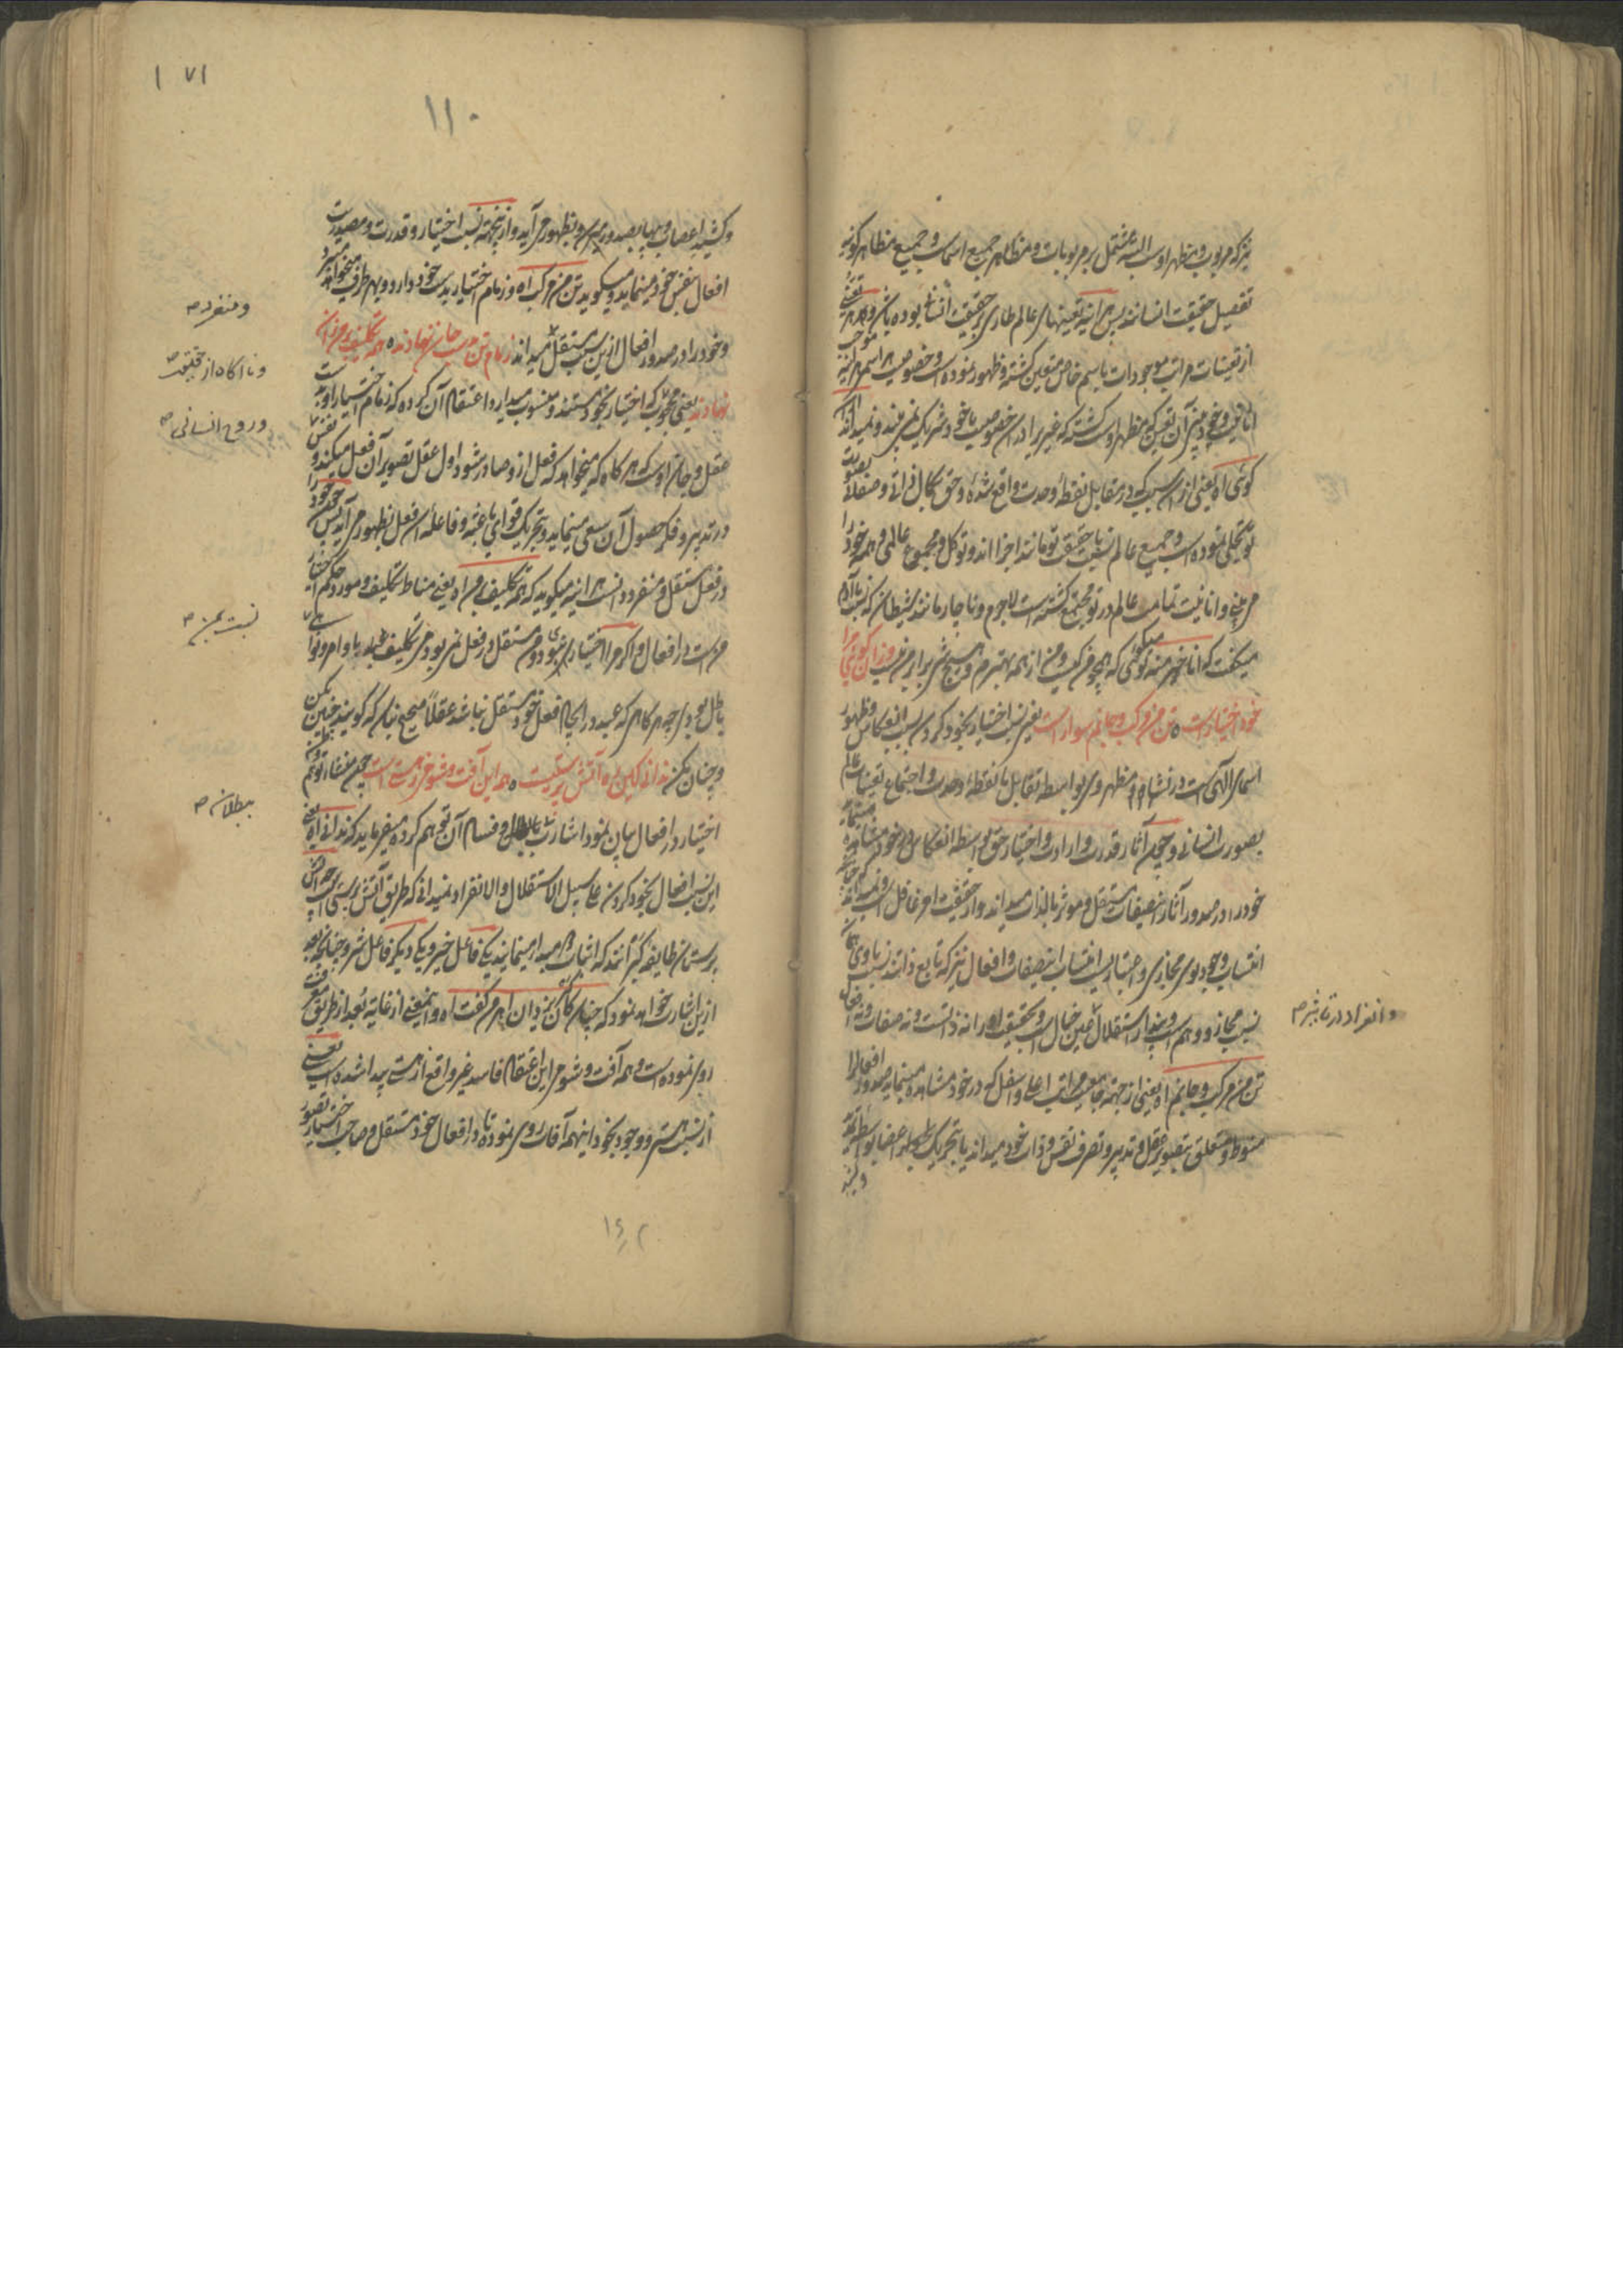 نیز که مربوب و مظهر اوست البته مشتمل بر مربوبات و مظاهر جمیع اسماست و جمیع مظاهر کونیه
تفصیل حقیقت انسانند پس هرآینه تعینهای عالم طاری بر حقیقت انسانی بوده باشد و هر تعینی
از تعینات مراتب موجودات باسم خاص متعین گشته و ظهور نموده است و خصوصیت هر اسم هرآینه موجب
انانیت و خودبینی آن تعین که مظهر اوست گشته که غیر را در آن خصوصیت با خود شریک نمی بیند و نمیداند
گوئی اه یعنی از آن سبب که در مقابل نقطه وحدت واقع شده و حق بکمال ذاتی و صفاتی بصورت
تو تجلی نموده است و جمیع عالم نسبت با حقیقت تو مانند اجزا اند و تو کل و مجموع عالمی و همه خود را
می بینی و انانیت تمامت عالم در تو مجتمع گشته است لاجرم و ناچار مانند شیطان که نسبت با آدم
میگفت که انا خیر منه تو میگوئی که همچو من کیست و من از همه بهترم و هیچ شی برابر من نیست از آن گوئی مرا
خود اختیارست ه تن من مرکب و جانم سوارست یعنی نسبت اختیار بخود کردن بسبب انعکاس و ظهور
اسمای الهی است در نشاه و مظهر وی بواسطه تقابل با نقطه وحدت و اجتماع تعینات عالم
بصورت انسانی و چون آثار قدرت و ارادت و اختیار حق بواسطه انعکاس در خود مشاهده مینماید
خود را در صدور آثار این صفات مستقل و موثر بالذات میداند و از حقیقت امر غافل است و نمیداند که چنانچه
انتساب وجود بوی مجازی و اعتباریست انتساب این صفات و افعال نیز که تابع ذاتند نسبت با وی همان
نسبت مجاز و وهم است و پندار استقلال عین خیال است و بحقیقت او را نه ذاتست و نه صفات و نه افعال
وانفراد در تاثیر صح
تن من مرکب و جانم اه یعنی از جهت جامعیت مراتب اعلی و اسفل که در خود مشاهده مینماید صدور افعال را
منوط و متعلق بتصویر عقل و تدبیر و تصرف نفس و ذات خود میداند یا بتحریک طبع اعضا بواسطه
و کشیدن اعصاب و بصدور میرسد و بظهور می آید و از اینجهت نسبت اختیار و قدرت و مصدریت
افعال بنفس خود مینماید و میگوید تن من مرکب اه و زمام اختیار بدست خود دارد و بهر طرف میخواهد میبرد
ومنفرد صح
و خود را در صدور افعال ازین سبب مستقل میداند زمام تن بدست جان نهادند ه همه تکلیف بر من زان
وناآگاه از حقیقت صح
نهادند یعنی محجوب که اختیار بخود مستند و منسوب میدارد اعتقاد آن کرده که زمام اختیار او بدست
وروح انسانی صح
عقل و جان اوست که هر گاه که میخواهد که فعل از وصادر شود اول عقل تصویر آن فعل میکند و نفس
در تدبیر و فکر حصول آن سعی مینماید و بتحریک قوای باعثه و فاعله آن فعل بظهور می آید پس چون خود را
در فعل مستقل و منفرد دانست هرآینه میگوید که همه تکلیف بر من اه یعنی مناط تکلیف و مورد حکم اختیار
نسبت بمن صح
منست در افعال و اگر مرا اختیاری نبودی و من مستقل در فعل نمی بودم تکلیف با وامر و نواهی
باطل بودی چه هر گاه که عبد در ایجاد فعل خود مستقل نباشد عقلا صحیح نباشد که گویند چنین بکن
و چنان مکن ندانی کین ره آتش پرستیست ه همه این آفت و شومی ز هستیست چون منشاء توهم
بطلان صح
اختیار در افعال بیان نمود اشارت ببطلان و فساد آن توهم کرده میفرماید که ندانی اه یعنی
این نسبت افعال بخود کردن علی سبیل الاستقلال والانفراد نمیدانی که طریق آتش پرستی است چه آتش
پرستان طایفه گبرانند که اثبات دو مبدا مینمایند یکی فاعل خیر و یکی دیگر فاعل شر و چنانچه بعد
ازین اشارت خواهد نمود که چنان کان گبر یزدان اهرمن گفت اه و اینمعنی از غایت بعد از طریق معرفت
روی نموده است و همه آفت و شومی این اعتقاد فاسد غیر واقع از هستی پیدا شده است یعنی
از نسبت هستی و وجود بخود اینهمه آفات روی نموده تا در افعال خود مستقل و صاحب اختیار تصور
۱۱۰
۱۷۱